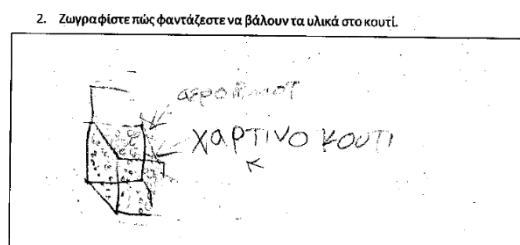 2. Ζωγραφίστε πώς φαντάζεστε να βάλουν τα υλικά στο κουτί.
χαρτινο κουτι